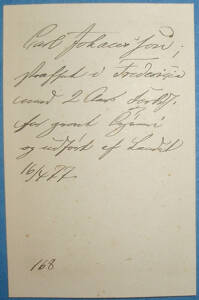 Carl Johansson,
straffet i Fredericia
med 2 Aars Forbf.
for grovt Tyveri
og udført af Landet
16/4 77
168